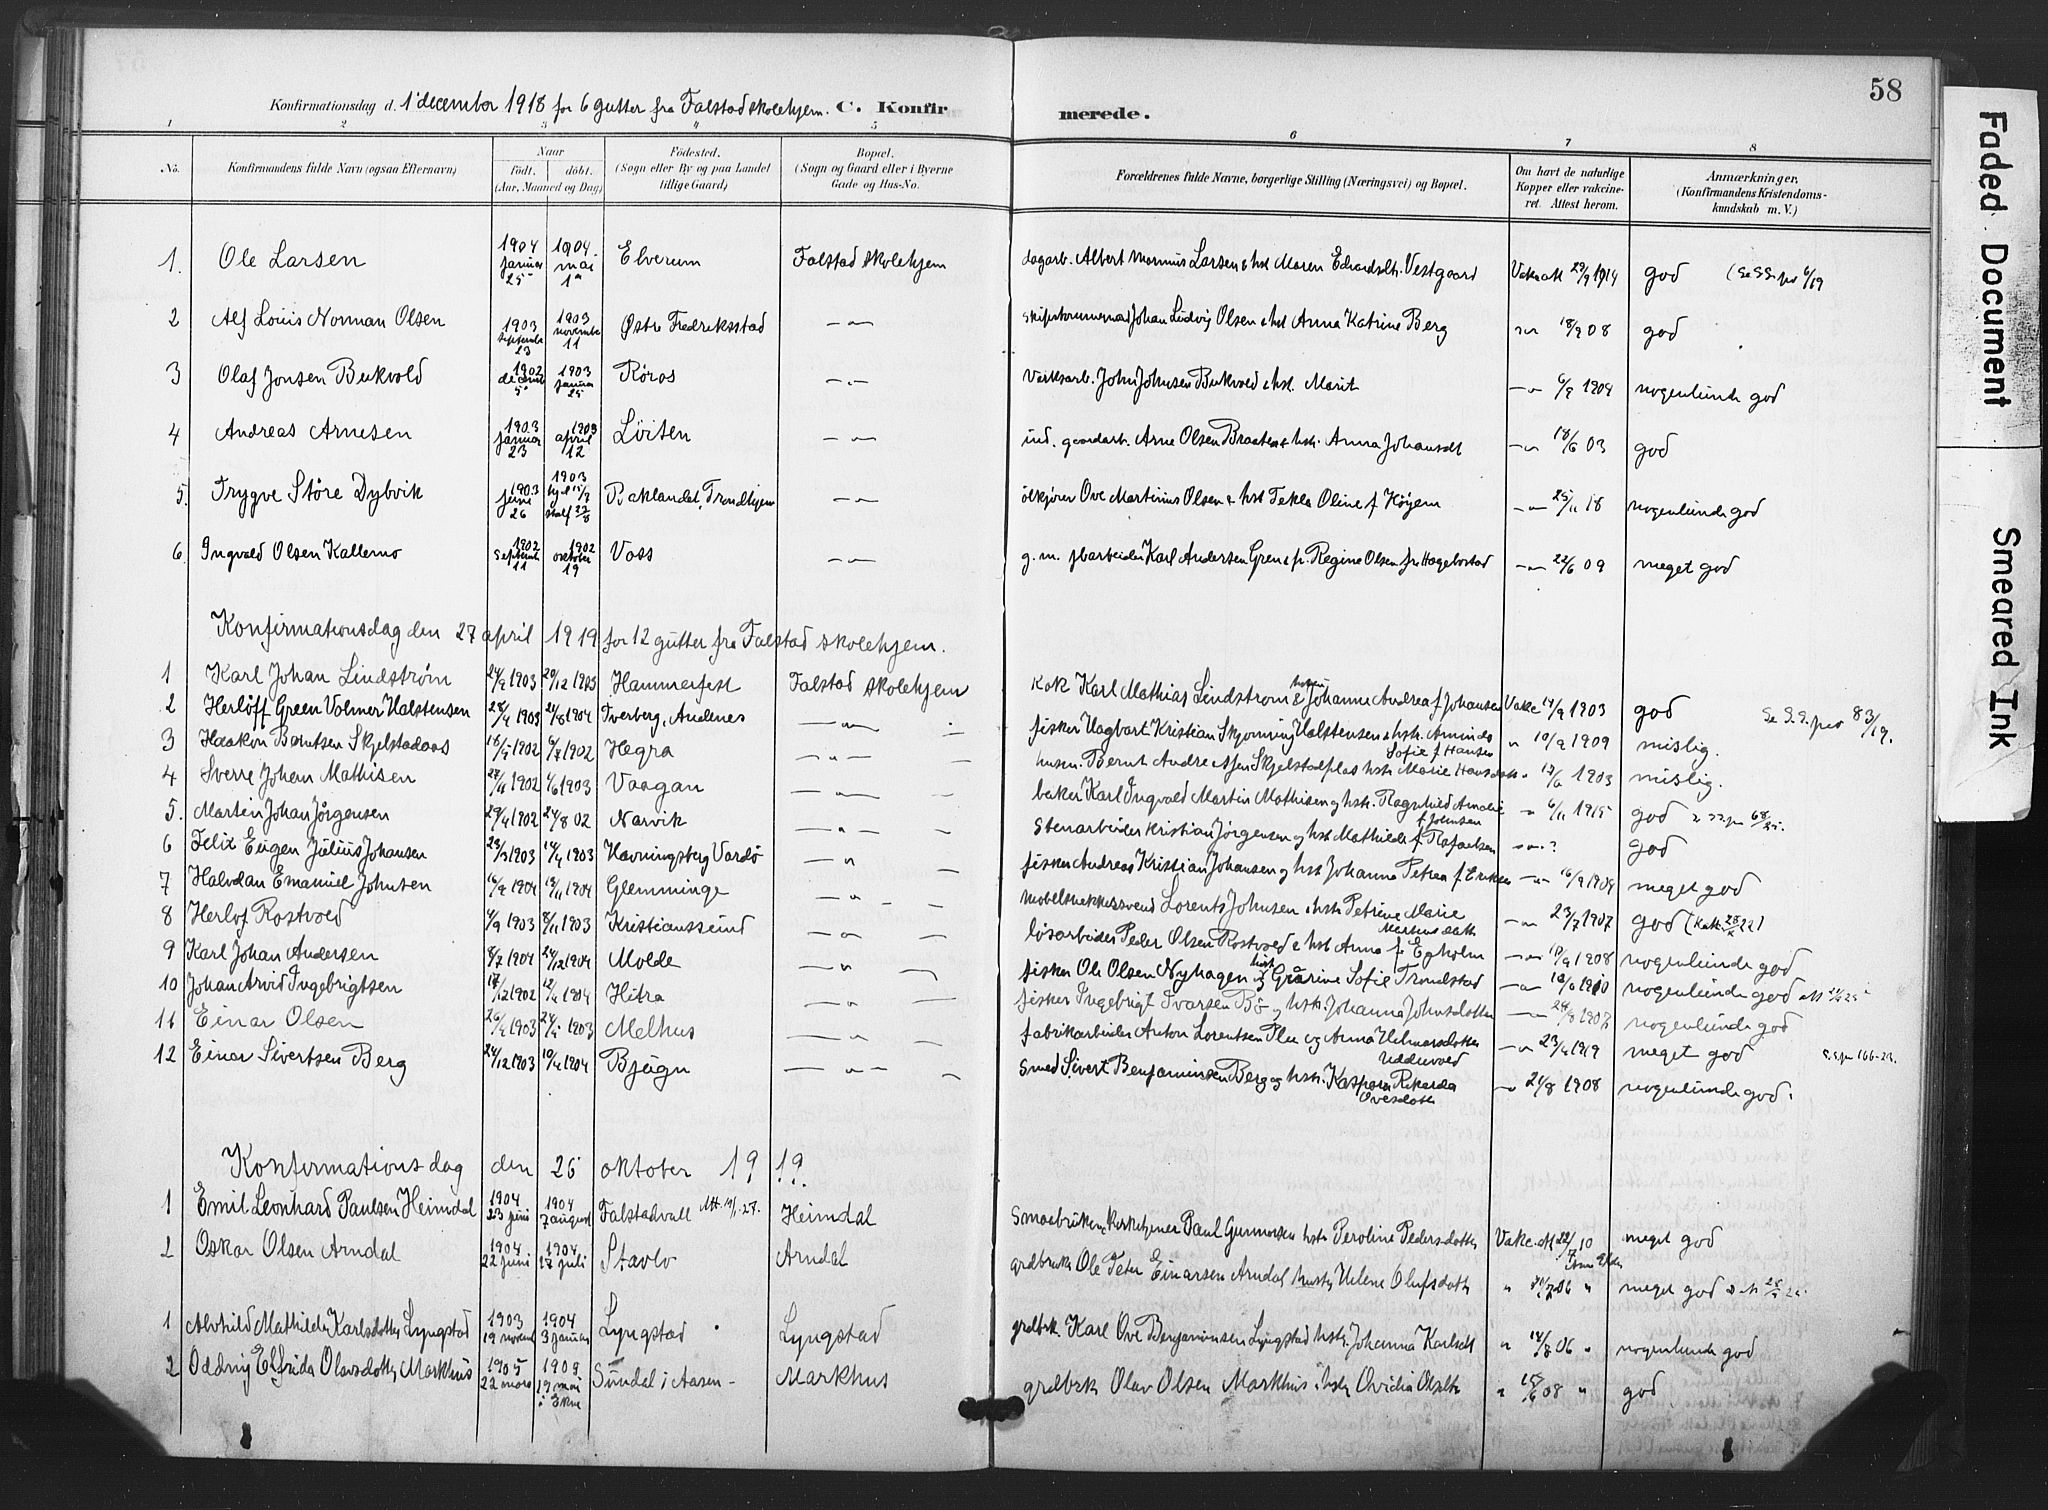 58
Konfirmationsdag d. 1' december 1918 for 6 gutter fra Falstad skolehjem. C. Konfirmerede.
1 2 3 4 5 6 7 8
No. Konfirmandens fulde Navn (ogsaa Efternavn) Naar født. døbt. (Aar, Maaned og Dag) Fødested. (Sogn eller By og paa Landet tillige Gaard) Bopæl. (Sogn og Gaard eller i Byerne Gade og Hus-No. Forældrenes fulde Navne, borgerlige Stilling (Næringsvei) og Bopæl. Om havt de naturlige Kopper eller vakcineret. Attest herom. Anmærkninger. (Konfirmandens Kristendomskundskab m. V.)
1. Ole Larsen 1904 januar 25 1904 mai 1ª Elverum Falstad skolehjem dagarb. Albert Larsen & hst Maren Vestgaard Vakc. att 29/9 1914 god (Se S.S. pro 6/19
2 Alf Louis Norman Olsen 1903 september 23 1903 november 11 Østre Fredriksstad —"— Johan Ludvig Olsen & hst Anna Katrine Berg —"— 18/9 08 god
3 Olaf Jonsen Bukvold 1902 decemb 5 1903 januar 25 Røros —"— Verksarb. John Johnsen Bukvold & hst. Marit —"— 6/9 1904 nogenlunde god
4 Andreas Arnesen 1903 januar 23 1903 april 12 Løiten —"— ind. gaardarb. Arne Olsen Braaten & hst. Anna Johansdt —"— 18/6 03 god
5. Trygve Støre Dybvik 1903 juni 26 1903 Baklandet, Trondhjem —"— ølkjører Ove Martinius Olsen & hst Tekla Oline f. Høyem —"— 25/11 18 nogenlunde god
6 Ingvald Olsen Kallemo 1902 septemb 11 1902 oktober 19 Voss —"— g. m. Karl Andersen Gren & p. Regine Olsen fra Hægebostad —"— 22/6 09 meget god
Konfirmationsdag den 27 april 1919 for 12 gutter fra Falstad skolehjem.
1 Karl Johan Lindstrøm 24/9 1903 20/12 1903 Hammerfest Falstad skolehjem Kok Karl Mathias Lindstrøm & Johanne Andrea f Johansen Vakc 14/9 1903 god Se S.S. pro 83/19.
2 Herløff Green Volmer Halstensen 28/4 1903 21/8 1904 Tverberg, Andenes —"— fisker Hagbart Kristian Skjønning Halstensen & hstr. Aminda Sofie f Hansen " 10/9 1909 mislig.
3 Haakon Berntsen Skjelstadaas 18/5 1902 6/7 1902 Hegra —"— husm. Bernt Andreassen Skjelstadplas hstr Marie Hansdatt " 17/6 1903 mislig.
4 Sverre Johan Mathisen 27/11 1902 1/6 1903 Vaagan —"— baker Karl Ingvald Martin Mathisen og hstr. Ragnhild Amalie f Johnsen " 6/11 1915 god
5. Martin Johan Jørgensen 29/4 1902 24/8 02 Narvik —"— Stenarbeider Kristian Jørgensen og hst Mathilde f. Rafaelsen —"— ? god
6 Felix Eugen Julius Johansen 23/2 1903 14/4 1903 Havningsberg Vardø —"— fisker Andreas Kristian Johansen og hst Johanna Petrea f. Eriksen —"— 16/9 1909 meget god
7 Halvdan Emanuel Johnsen 16/9 1904 13/11 1904 Glemminge —"— Møbelsnekkersvend Lorents Johnsen & hstr Petrine Marie Martinsdatt —"— 23/7 1907 god
8 Herlof Rostvold 4/9 1903 8/11 1903 Kristianssund —"— løsarbeider Peder Olsen Rostvold & hst Anna f. Egholm —"— 17/9 1908 nogenlunde god
9 Karl Johan Andersen 8/7 1904 24/12 1904 Molde —"— fisker Ole Olsen Nyhagen hst og Grarine Sofie Trondstad —"— 12/6 1910 nogenlunde god
10 Johan Arvid Ingebrigtsen 17/12 1902 12/4 1904 Hitra —"— fisker Ingebrigt Ivarsen Bø og hstr. Johanna Johnsdatter —"— 24/8 1907 nogenlunde god
11 Einar Olsen 26/4 1903 24/5 1903 Melhus —"— fabrikarbeider Anton Lorentsen og Anna Hilmarsdatter Uddevold —"— 23/4 1919 meget god S.S. pro 166-23.
12 Einar Sivertsen Berg 24/12 1903 10/4 1904 Bjugn —"— Smed Sivert Benjaminsen Berg og hstr. Kaspara Rikarda Ovesdotter —"— 21/8 1908 nogenlunde god.
Konfirmationsdag den 26 oktober 1919.
1 Emil Leonhard Paulsen Heimdal 1904 23 juni 1904 7 august Falstadvall Heimdal Smaabruker, Kirketjener Paul Gunnarsen hstr Peroline Pedersdotter Vakc. att 22/7 10 meget god
2 Oskar Olsen Arndal 1904 22 juni 1904 17 juli Stavlo Arndal grdbruk Ole Peter Einarsen Arndal hustr Helene Olufsdotter " 06 " meget god
1 Alvhild Mathilde Karlsdotter Lyngstad 1903 19 novemb 1904 3 januar Lyngstad Lyngstad grdbrk. Karl Ove Benjaminsen Lyngstad hstr. Johanna Karlsdt " 14/8 06 " nogenlunde god
2 Oddrig Elfrida Olavsdotter Markhus 1905 22 mars 1909 19 mai i Ekne Sundal i Aasen - Markhus grdbrk Olav Olsen Markhus & hstr Ovidia Olsdtr " 15/6 08 " god
Faded Document
Smeared Ink